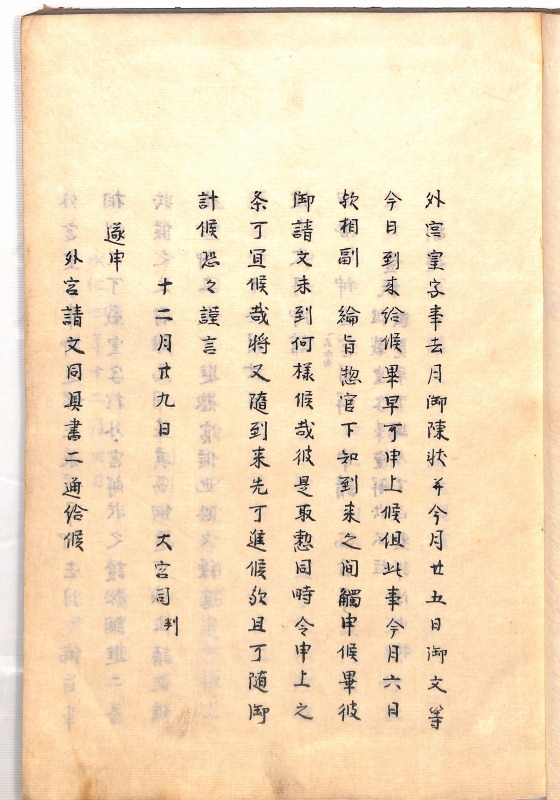 外宮皇字事去月御陳状并今月廿五日御文等
今日到来給候畢早可申上候但此事今月六日
欤相副綸旨惣官下知到来之間觸申候畢彼
御請文未到何様候哉彼是取惣同時令申上之
条可宜候哉将又随到来先可進候欤且可随御
計候恐々謹言
十二月廿九日　大宮司判
遂申
外宮請文同具書二通給候